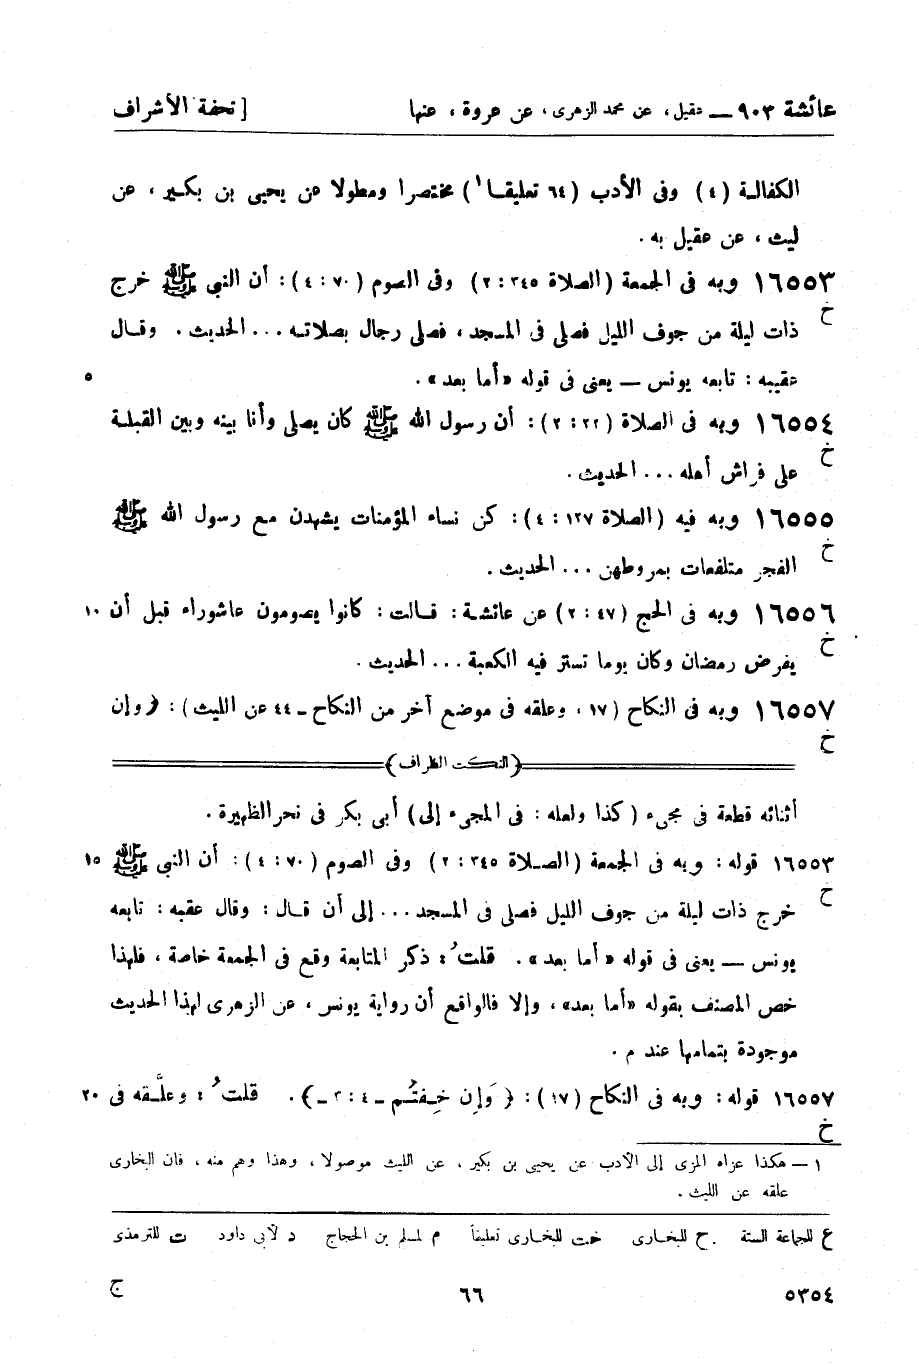 عائشة ٩٠٣ — عقيل، عن محمد الزهرى، عن عروة، عنها [ تحفة الأشراف
الكفالة (٤) وفى الأدب (٦٤ تعليقا١) مختصرا ومطولا عن يحيى بن بكير، عن
ليث، عن عقيل به.
١٦٥٥٣ وبه فى الجمعة (الصلاة ٣٤٥ : ٢) وفى الصوم (٧٠ : ٤): أن النبى ﷺ خرج
خ
ذات ليلة من جوف الليل فصلى فى المسجد، فصلى رجال بصلاته... الحديث. وقال
عقيبه: تابعه يونس — يعنى فى قوله «أما بعد». ٥
١٦٥٥٤ وبه فى الصلاة (٢٢ : ٢): أن رسول الله ﷺ كان يصلى وأنا بينه وبين القبلة
خ
على فراش أهله... الحديث.
١٦٥٥٥ وبه فيه (الصلاة ١٢٧ : ٤): كن نساء المؤمنات يشهدن مع رسول الله ﷺ
خ
الفجر متلفعات بمروطهن... الحديث.
١٦٥٥٦ وبه فى الحج (٤٧ : ٢) عن عائشة: قالت: كانوا يصومون عاشوراء قبل أن ١٠
خ
يفرض رمضان وكان يوما تستر فيه الكعبة... الحديث.
١٦٥٥٧ وبه فى النكاح (١٧، وعلقه فى موضع آخر من النكاح ـ ٤٤ عن الليث): ﴿وإن
خ
(النكت الظراف)
أثنائه قطعة فى مجىء (كذا ولعله: فى المجىء إلى) أبى بكر فى نحر الظهيرة.
١٦٥٥٣ قوله: وبه فى الجمعة (الصلاة ٣٤٥ : ٢) وفى الصوم (٧٠ : ٤): أن النبى ﷺ ١٥
خ
خرج ذات ليلة من جوف الليل فصلى فى المسجد... إلى أن قال: وقال عقبه: تابعه
يونس — يعنى فى قوله «أما بعد». قلتُ: ذكر المتابعة وقع فى الجمعة خاصة، فلهذا
خص المصنف بقوله «أما بعد»، وإلا فالواقع أن رواية يونس، عن الزهرى لهذا الحديث
موجودة بتمامها عند م.
١٦٥٥٧ قوله: وبه فى النكاح (١٧): ﴿وَإِن خِفتُم ـ ٤ : ٣ ـ﴾. قلتُ: وعلَّقه فى ٢٠
خ
١ — هكذا عزاه المزى إلى الأدب عن يحيى بن بكير، عن الليث موصولا، وهذا وهم منه، فان البخارى
علقه عن الليث.
ع للجماعة الستة خ للبخارى خت للبخارى تعليقاً م لمسلم بن الحجاج د لأبى داود ت للترمذى
٥٣٥٤ ٦٦ ج